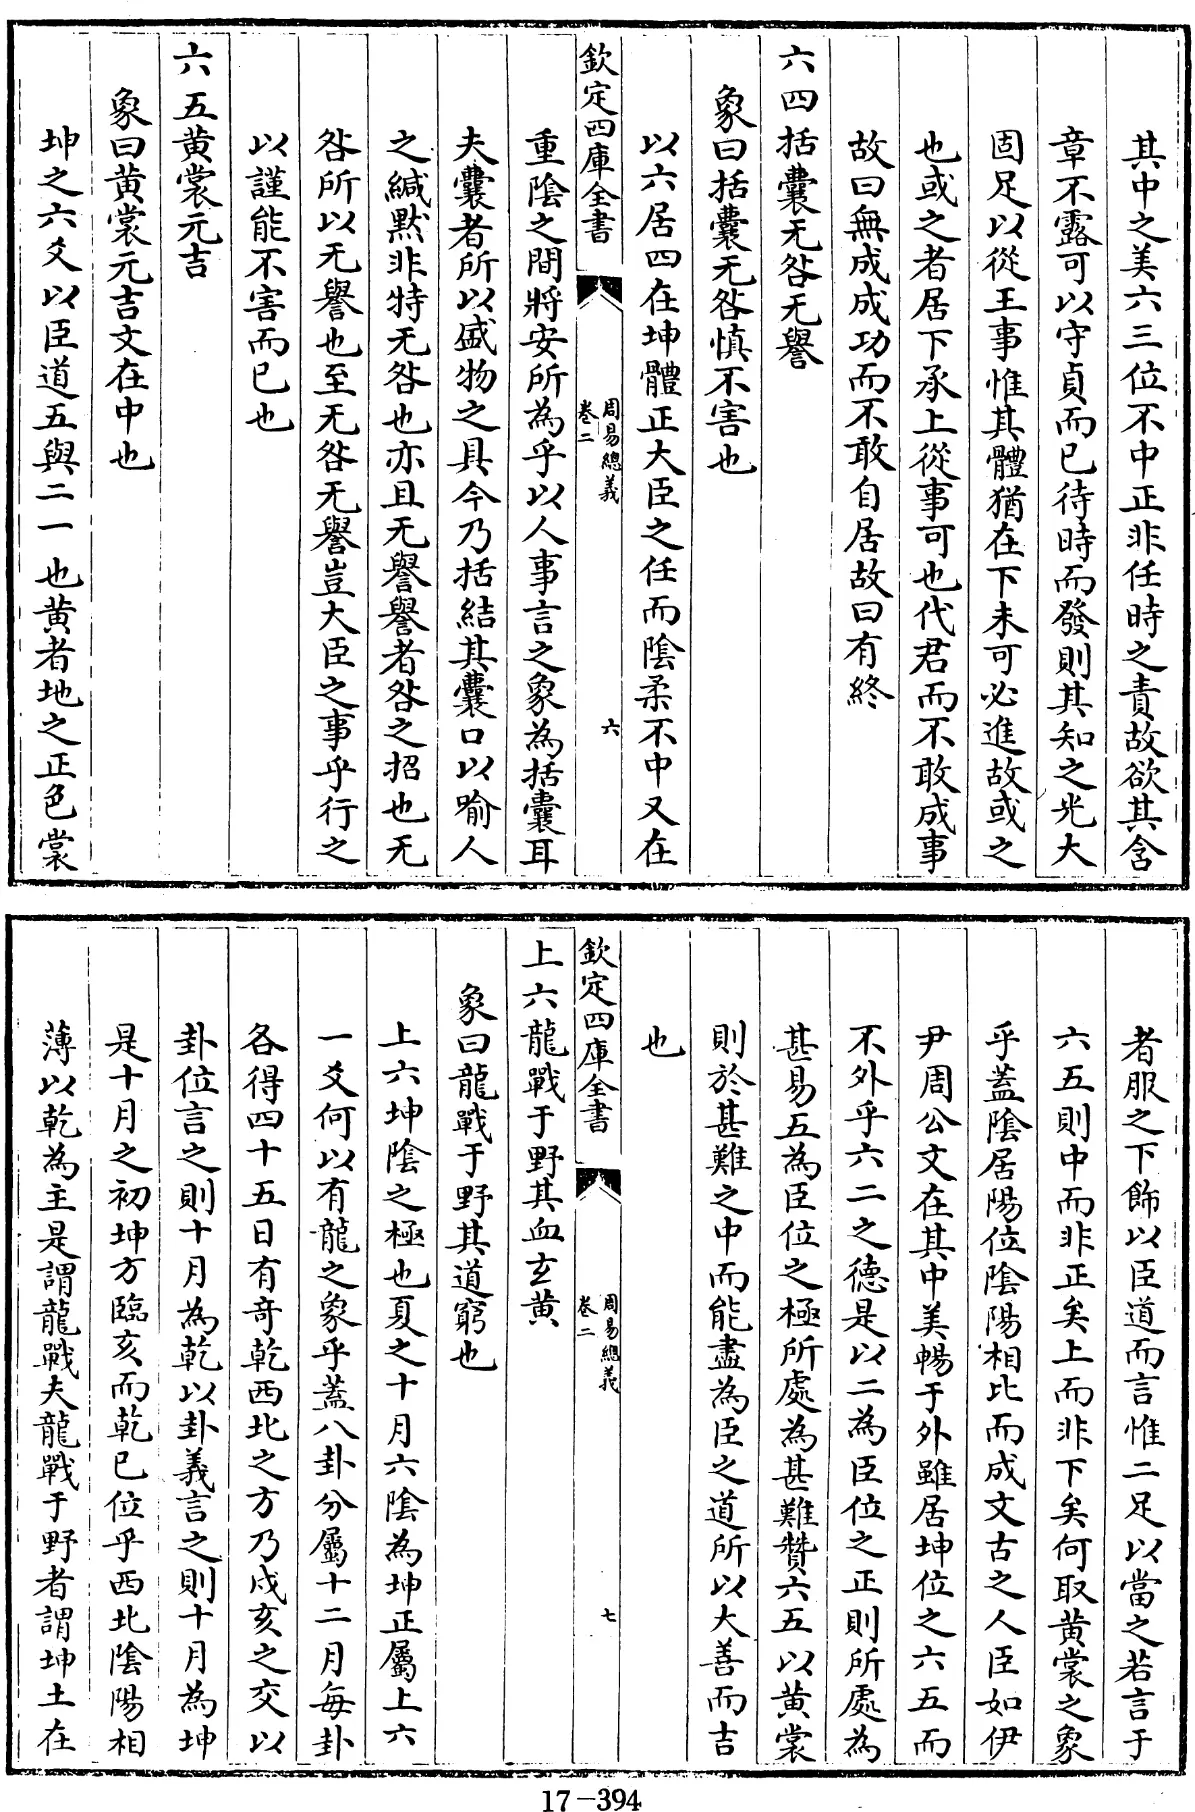 其中之美六三位不中正非任時之責故欲其含
章不露可以守貞而已待時而發則其知之光大
固足以從王事惟其體猶在下未可必進故或之
也或之者居下承上從事可也代君而不敢成事
故曰無成成功而不敢自居故曰有終
六四括囊无咎无譽
象曰括囊无咎慎不害也
以六居四在坤體正大臣之任而陰柔不中又在
欽定四庫全書
周易總義
卷二
六
重陰之間將安所為乎以人事言之象為括囊耳
夫囊者所以盛物之具今乃括結其囊口以喻人
之緘默非特无咎也亦且无譽譽者咎之招也无
咎所以无譽也至无咎无譽豈大臣之事乎行之
以謹能不害而已也
六五黄裳元吉
象曰黄裳元吉文在中也
坤之六爻以臣道五與二一也黄者地之正色裳
者服之下飾以臣道而言惟二足以當之若言于
六五則中而非正矣上而非下矣何取黄裳之象
乎蓋陰居陽位陰陽相比而成文古之人臣如伊
尹周公文在其中美暢于外雖居坤位之六五而
不外乎六二之德是以二為臣位之正則所處為
甚易五為臣位之極所處為甚難贊六五以黄裳
則於甚難之中而能盡為臣之道所以大善而吉
也
欽定四庫全書
周易總義
卷二
七
上六龍戰于野其血玄黄
象曰龍戰于野其道窮也
上六坤陰之極也夏之十月六陰為坤正屬上六
一爻何以有龍之象乎蓋八卦分屬十二月每卦
各得四十五日有竒乾西北之方乃戌亥之交以
卦位言之則十月為乾以卦義言之則十月為坤
是十月之初坤方臨亥而乾已位乎西北陰陽相
薄以乾為主是謂龍戰夫龍戰于野者謂坤土在
17-394